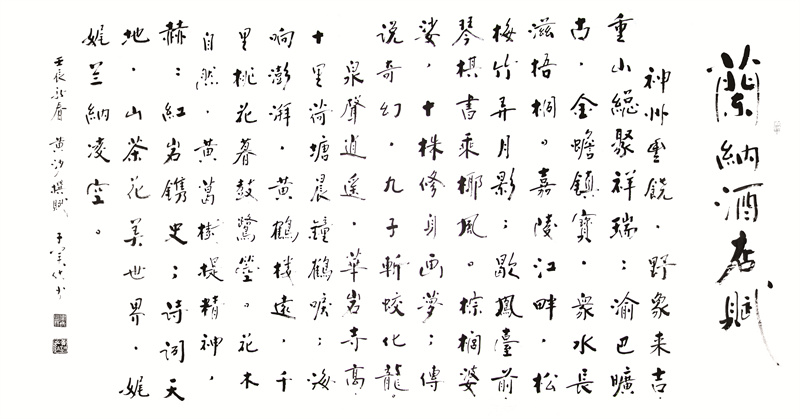 蘭納酒店賦
神州重饒，野象来吉，
重山緃聚祥瑞；渝巴曠
古，金蟾鎮寶，衆水長
滋梧桐。嘉陵江畔，松
梅竹弄月影；歇鳳臺前，
琴棋書乘椰風。棕榈婆
娑，十株修身画夢；傳
说奇幻，九子斬蛟化龍。
泉聲逍遥，華岩寺高，
十里荷塘晨鐘鶴唳；海
响澎湃，黄鶴楼遠，千
里桃花暮鼓鷺螢。花木
自然，黄葛樹提精神，
赫；紅岩鐫史；诗词天
地，山茶花美世界，娓
娓兰纳凌空。
壬辰新春 黄沙撰賦